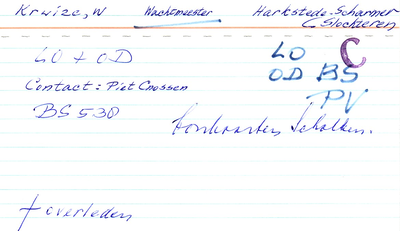 Kruize, W Wachtmeester Harkstede-Scharmer
(Slochteren
LO + OD LO C
OD BS
Contact: Piet Cnossen PV
BS 538
bonkaarten Scholten.
† overleden